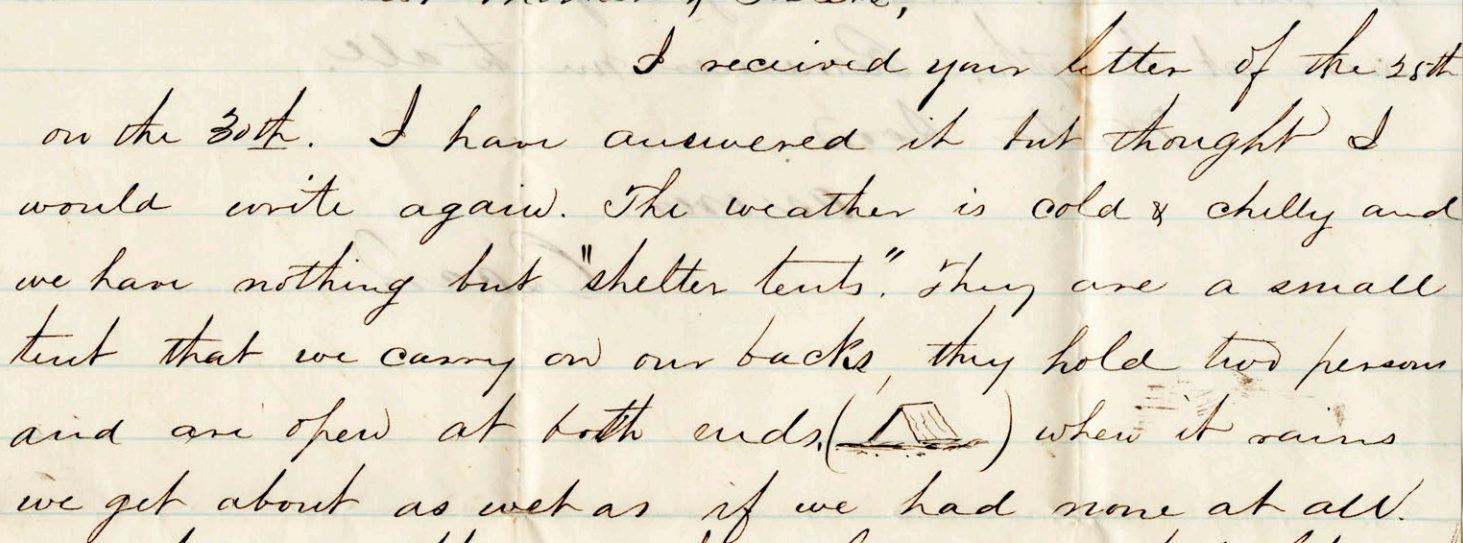 I received your letter of the 25th
on the 30th. I have answered it but thought I
would write again. The weather is cold & chilly and
we have nothing but "shelter tents". They are a small
tent that we carry on our backs, they hold two persons
and are open at both ends. ( ) when it rains
we get about as wet as if we had none at all.